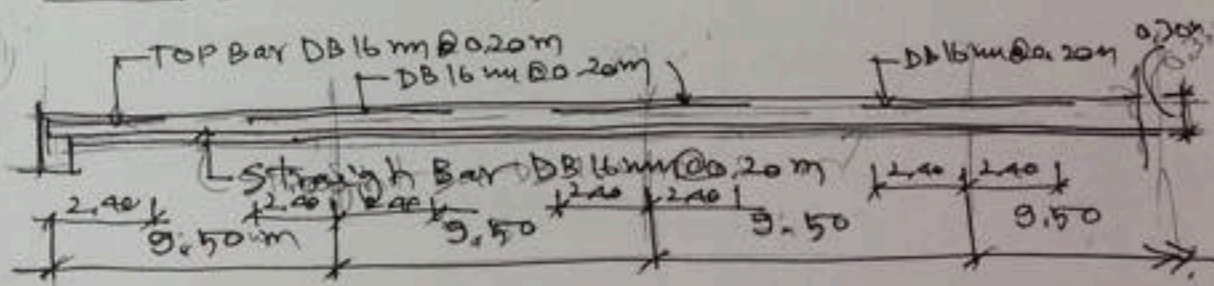 TOP Bar DB16mm@0.20m
DB16mm@0.20m
DB16mm@0.20m
0.30m.
Straigh Bar DB16mm@0.20m
2.40 2.40 2.40 2.40 2.40 2.40 2.40
9.50m 9.50 9.50 9.50